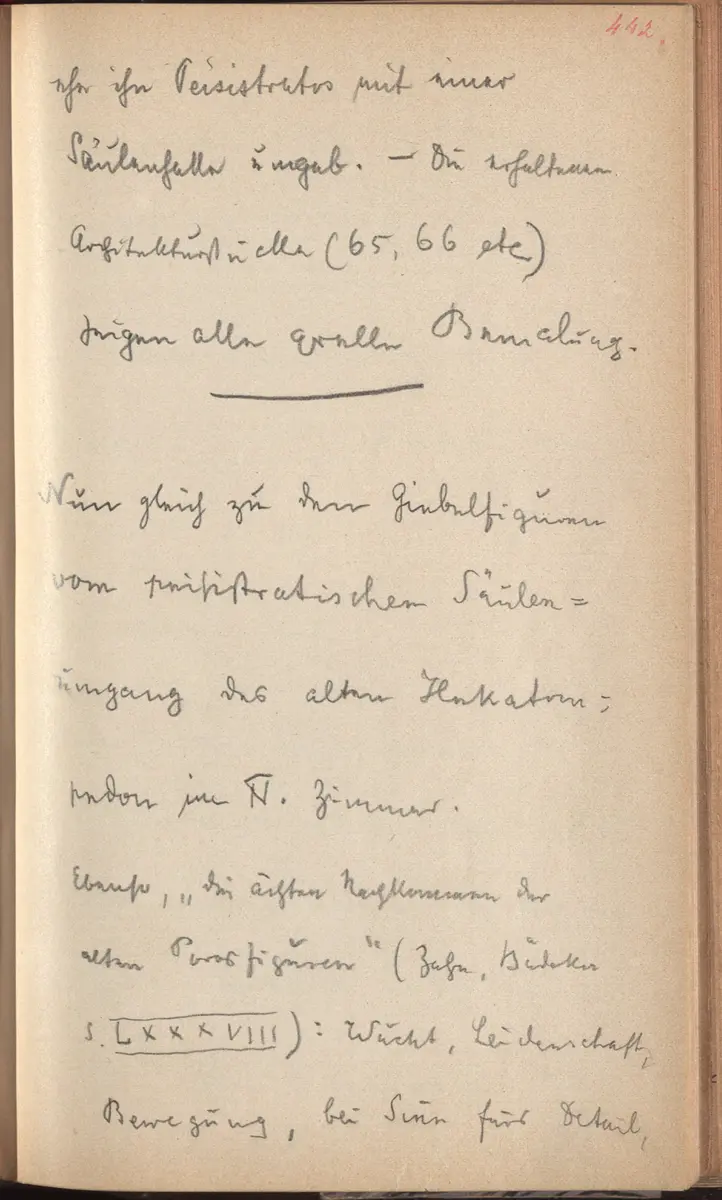 442.
ehe ihn Peisistratos mit einer
Säulenhalle umgab. – Die erhaltenen
Architekturstücke (65, 66 etc)
zeigen alle grelle Bemalung.
Nun gleich zu den Giebelfiguren
vom peisistratischen Säulen=
umgang des alten Hekatom=
pedon im IV. Zimmer.
Ebenso, „die ächten Nachkommen der
alten Porosfiguren“ (Zahn, Bädeker
S. LXXXVIII): Wucht, Leidenschaft,
Bewegung, bei Sinn fürs Detail,